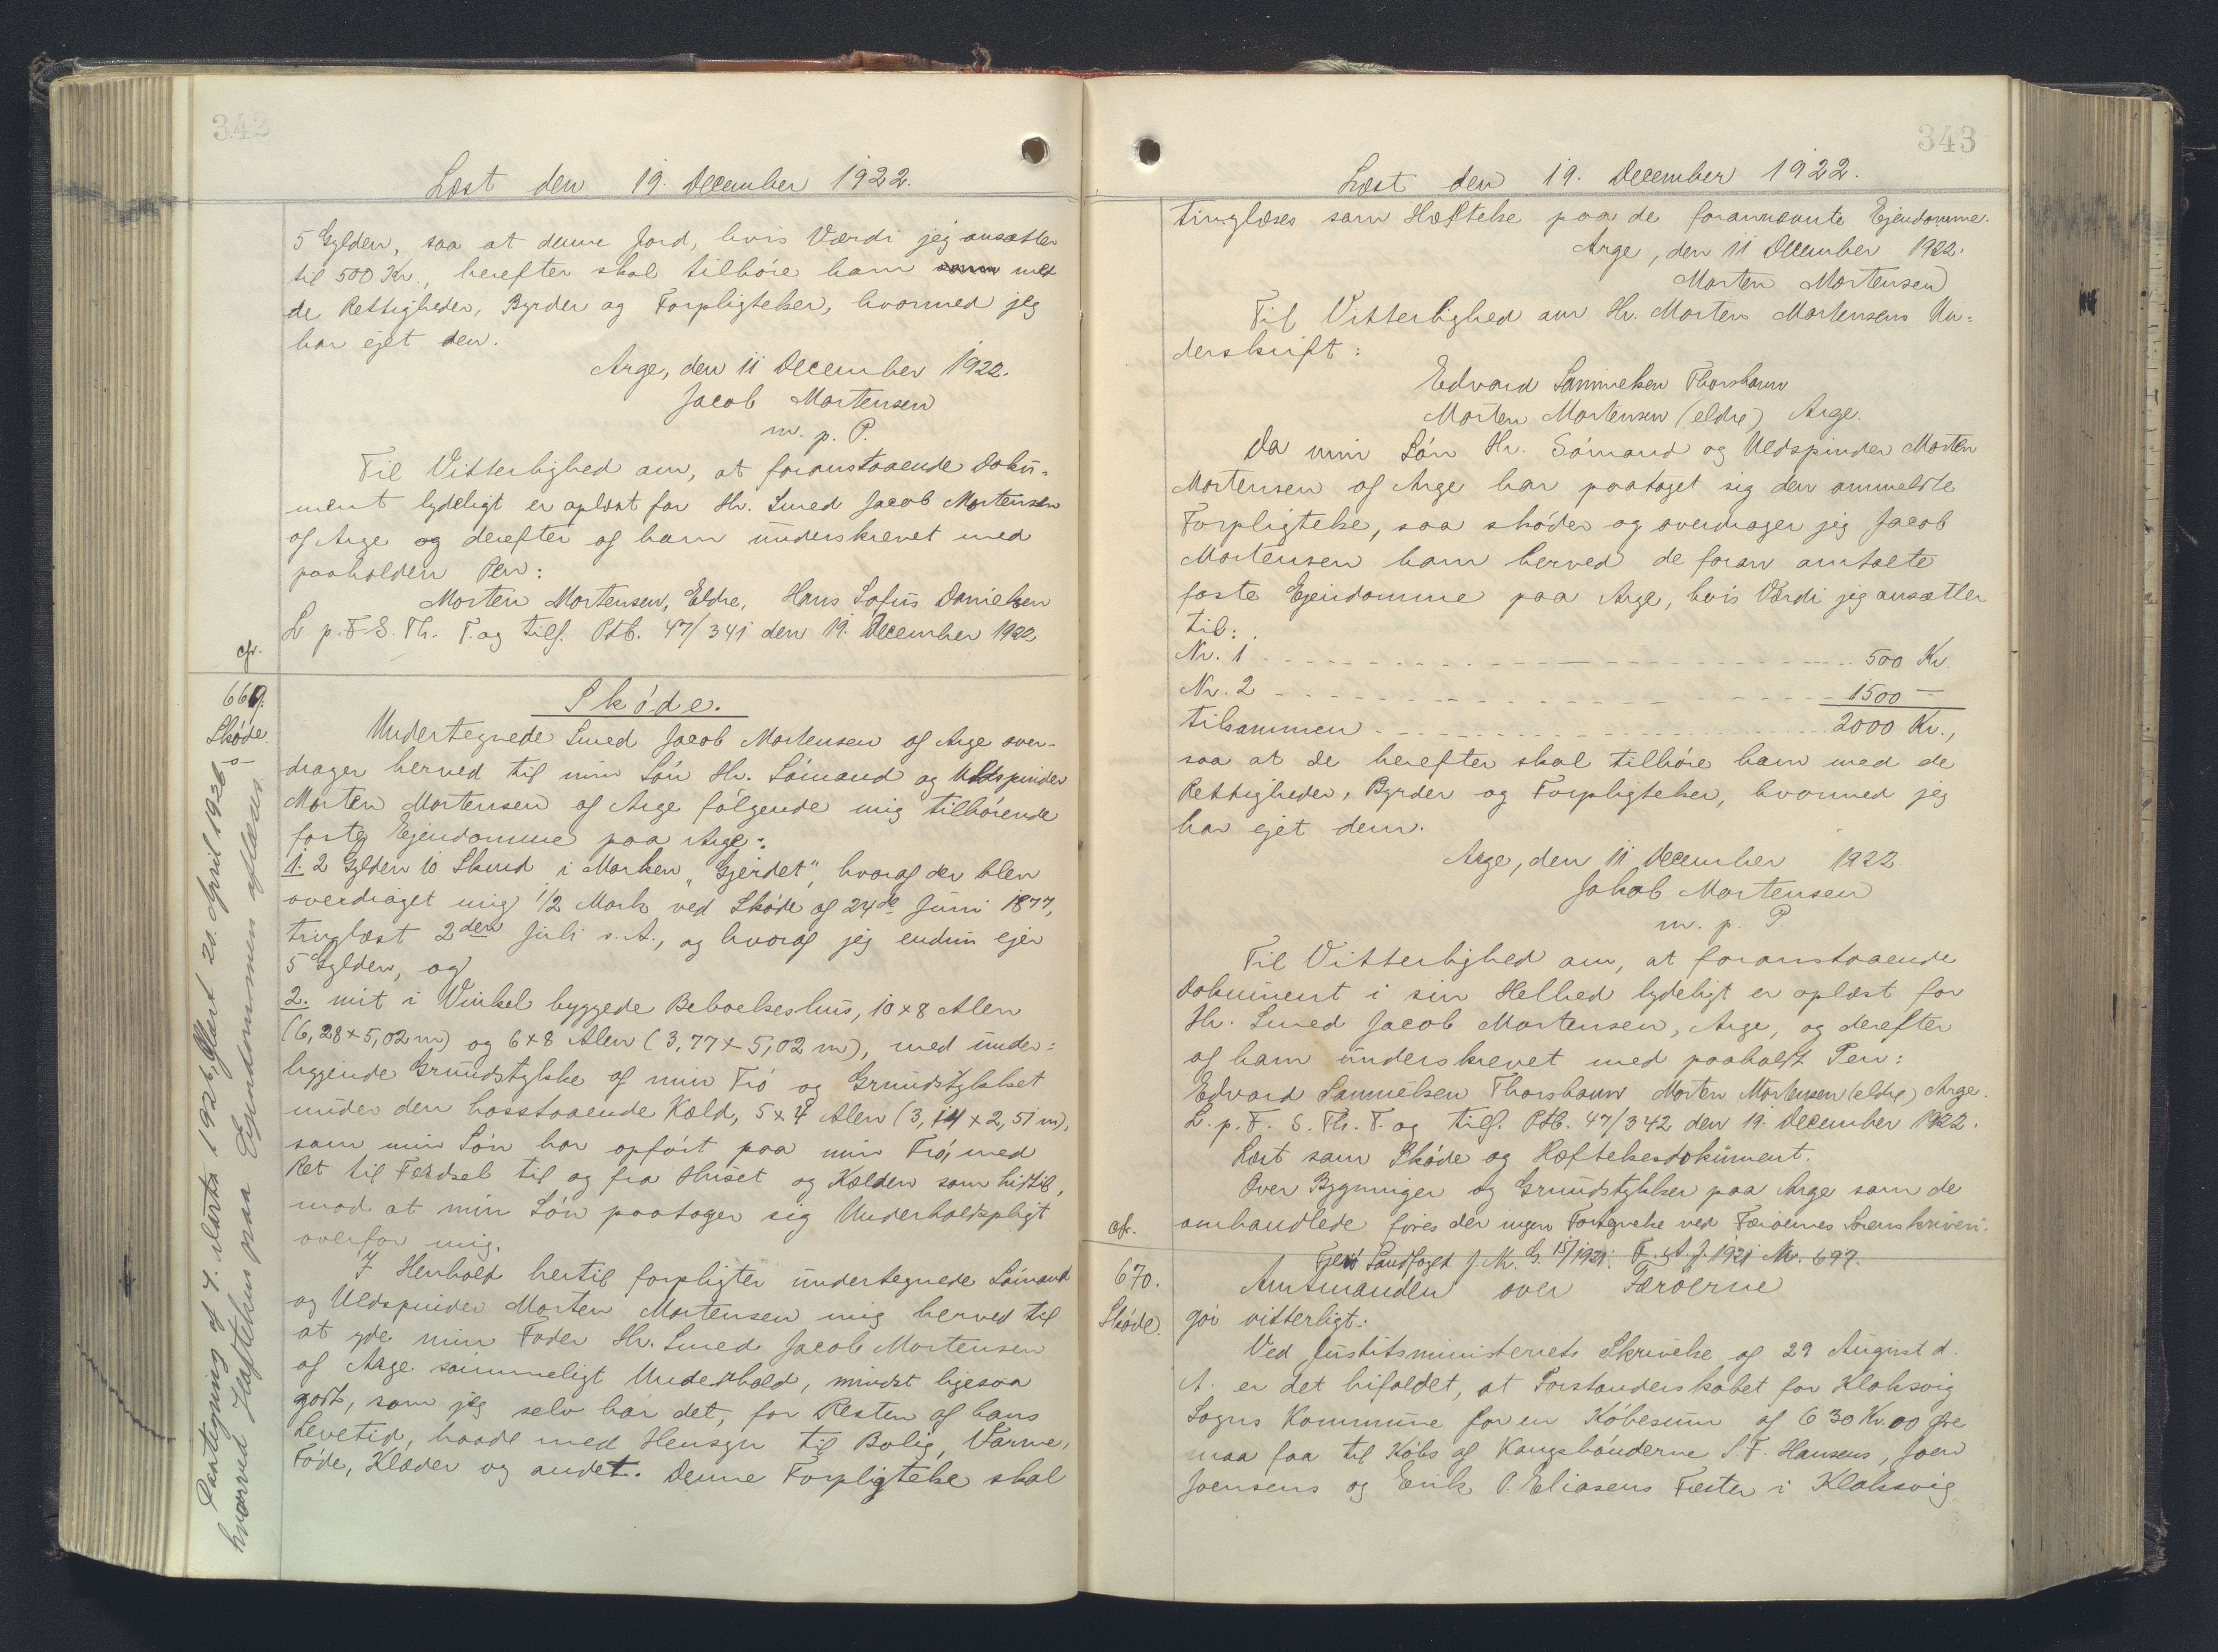 342
Læst den 19. December 1922.
5 Gylden, saa at denne Jord, hvis Værdi jeg ansætter
til 500 Kr., herefter skal tilhøre ham som med
de Rettigheder, Byrder og Forpligtelser, hvormed jeg
har ejet den.
Arge, den 11 December 1922.
Jacob Mortensen
m. p. P.
Til Vitterlighed om, at foranstaaende Doku-
ment lydeligt er oplæst for Hr. Smed Jacob Mortensen
af Arge og derefter af ham underskrevet med
paaholden Pen:
Morten Mortensen, Eldre, Hans Sofus Danielsen
L. p. F. S. Th. T. og tilf. Ptb. 47/341 den 19. December 1922
cfr.
669.
Skøde
Skøde.
Undertegnede Smed Jacob Mortensen af Arge over-
drager herved til min Søn Hr. Sømand og Uldspinder
Morten Mortensen af Arge følgende mig tilhørende
faste Ejendomme paa Arge:
1. 2 Gylden 10 Skind i Marken "Gjerdet", hvoraf der blev
overdraget mig 1/2 Mark ved Skøde af 24de Juni 1877,
tinglæst 2den Juli s. A., og hvoraf jeg endnu ejer
5 Gylden, og
2. mit i Vinkel byggede Beboelseshus, 10 x 8 Alen
(6,28 x 5,02 m) og 6 x 8 Alen (3,77 x 5,02 m), med under-
liggende Grundstykke af min Trø og Grundstykket
under den hosstaaende Kæld, 5 x 4 Alen (3,14 x 2,51 m),
som min Søn har opført paa min Trø, med
Ret til Færdsel til og fra Huset og Kælden som hidtil,
mod at min Søn paatager sig Underholdspligt
overfor mig.
I Henhold hertil forpligter undertegnede Sømand
og Uldspinder Morten Mortensen mig herved til
at yde min Fader Hr. Smed Jacob Mortensen
af Arge sømmeligt Underhold, mindst ligesaa
godt, som jeg selv har det, for Resten af hans
Levetid, baade med Hensyn til Bolig, Varme,
Føde, Klæder og andet. Denne Forpligtelse skal
Paategning af 4. Marts 1926, læst 20. April 1926
hvorved Hæftelsen paa Ejendommen aflæses
343
Læst den 19. December 1922.
tinglæses som Hæftelse paa de forannævnte Ejendomme.
Arge, den 11 December 1922.
Morten Mortensen
Til Vitterlighed om Hr. Morten Mortensens Un-
derskrift:
Edvard Samuelsen Thorshavn
Morten Mortensen (eldre) Arge.
Da min Søn Hr. Sømand og Uldspinder Morten
Mortensen af Arge har paataget sig den ommeldte
Forpligtelse, saa skøder og overdrager jeg Jacob
Mortensen ham herved de foran omtalte
faste Ejendomme paa Arge, hvis Værdi jeg ansætter
til:
Nr. 1 500 Kr.
Nr. 2 1500 —
tilsammen 2000 Kr.,
saa at de herefter skal tilhøre ham med de
Rettigheder, Byrder og Forpligtelser, hvormed jeg
har ejet dem.
Arge, den 11 December 1922.
Jakob Mortensen
m. p. P.
Til Vitterlighed om, at foranstaaende
Dokument i sin Helhed lydeligt er oplæst for
Hr. Smed Jacob Mortensen, Arge, og derefter
af ham underskrevet med paaholdt Pen:
Edvard Samuelsen Thorshavn Morten Mortensen (eldre) Arge.
L. p. F. S. Th. T. og tilf. Ptb. 47/342 den 19. December 1922.
Læst som Skøde og Hæftelsesdokument.
Over Bygninger og Grundstykker paa Arge som de
omhandlede føres der ingen Fortegnelse ved Færøernes Sorenskriveri.
cfr.
670.
Skøde.
Landfoged J. M. S. 15/1921. F. A. J. 1921 Nr. 697.
Amtmanden over Færøerne
gør vitterligt:
Ved Justitsministeriets Skrivelse af 29 August d.
A. er det bifaldet, at Forstanderskabet for Klaksvig
Sogns Kommune for en Købesum af 630 Kr. 00 Øre
maa faa til Købs af Kongsbønderne S. F. Hansens, Joen
Joensens og Erik P. Eliasens Fæster i Klaksvig